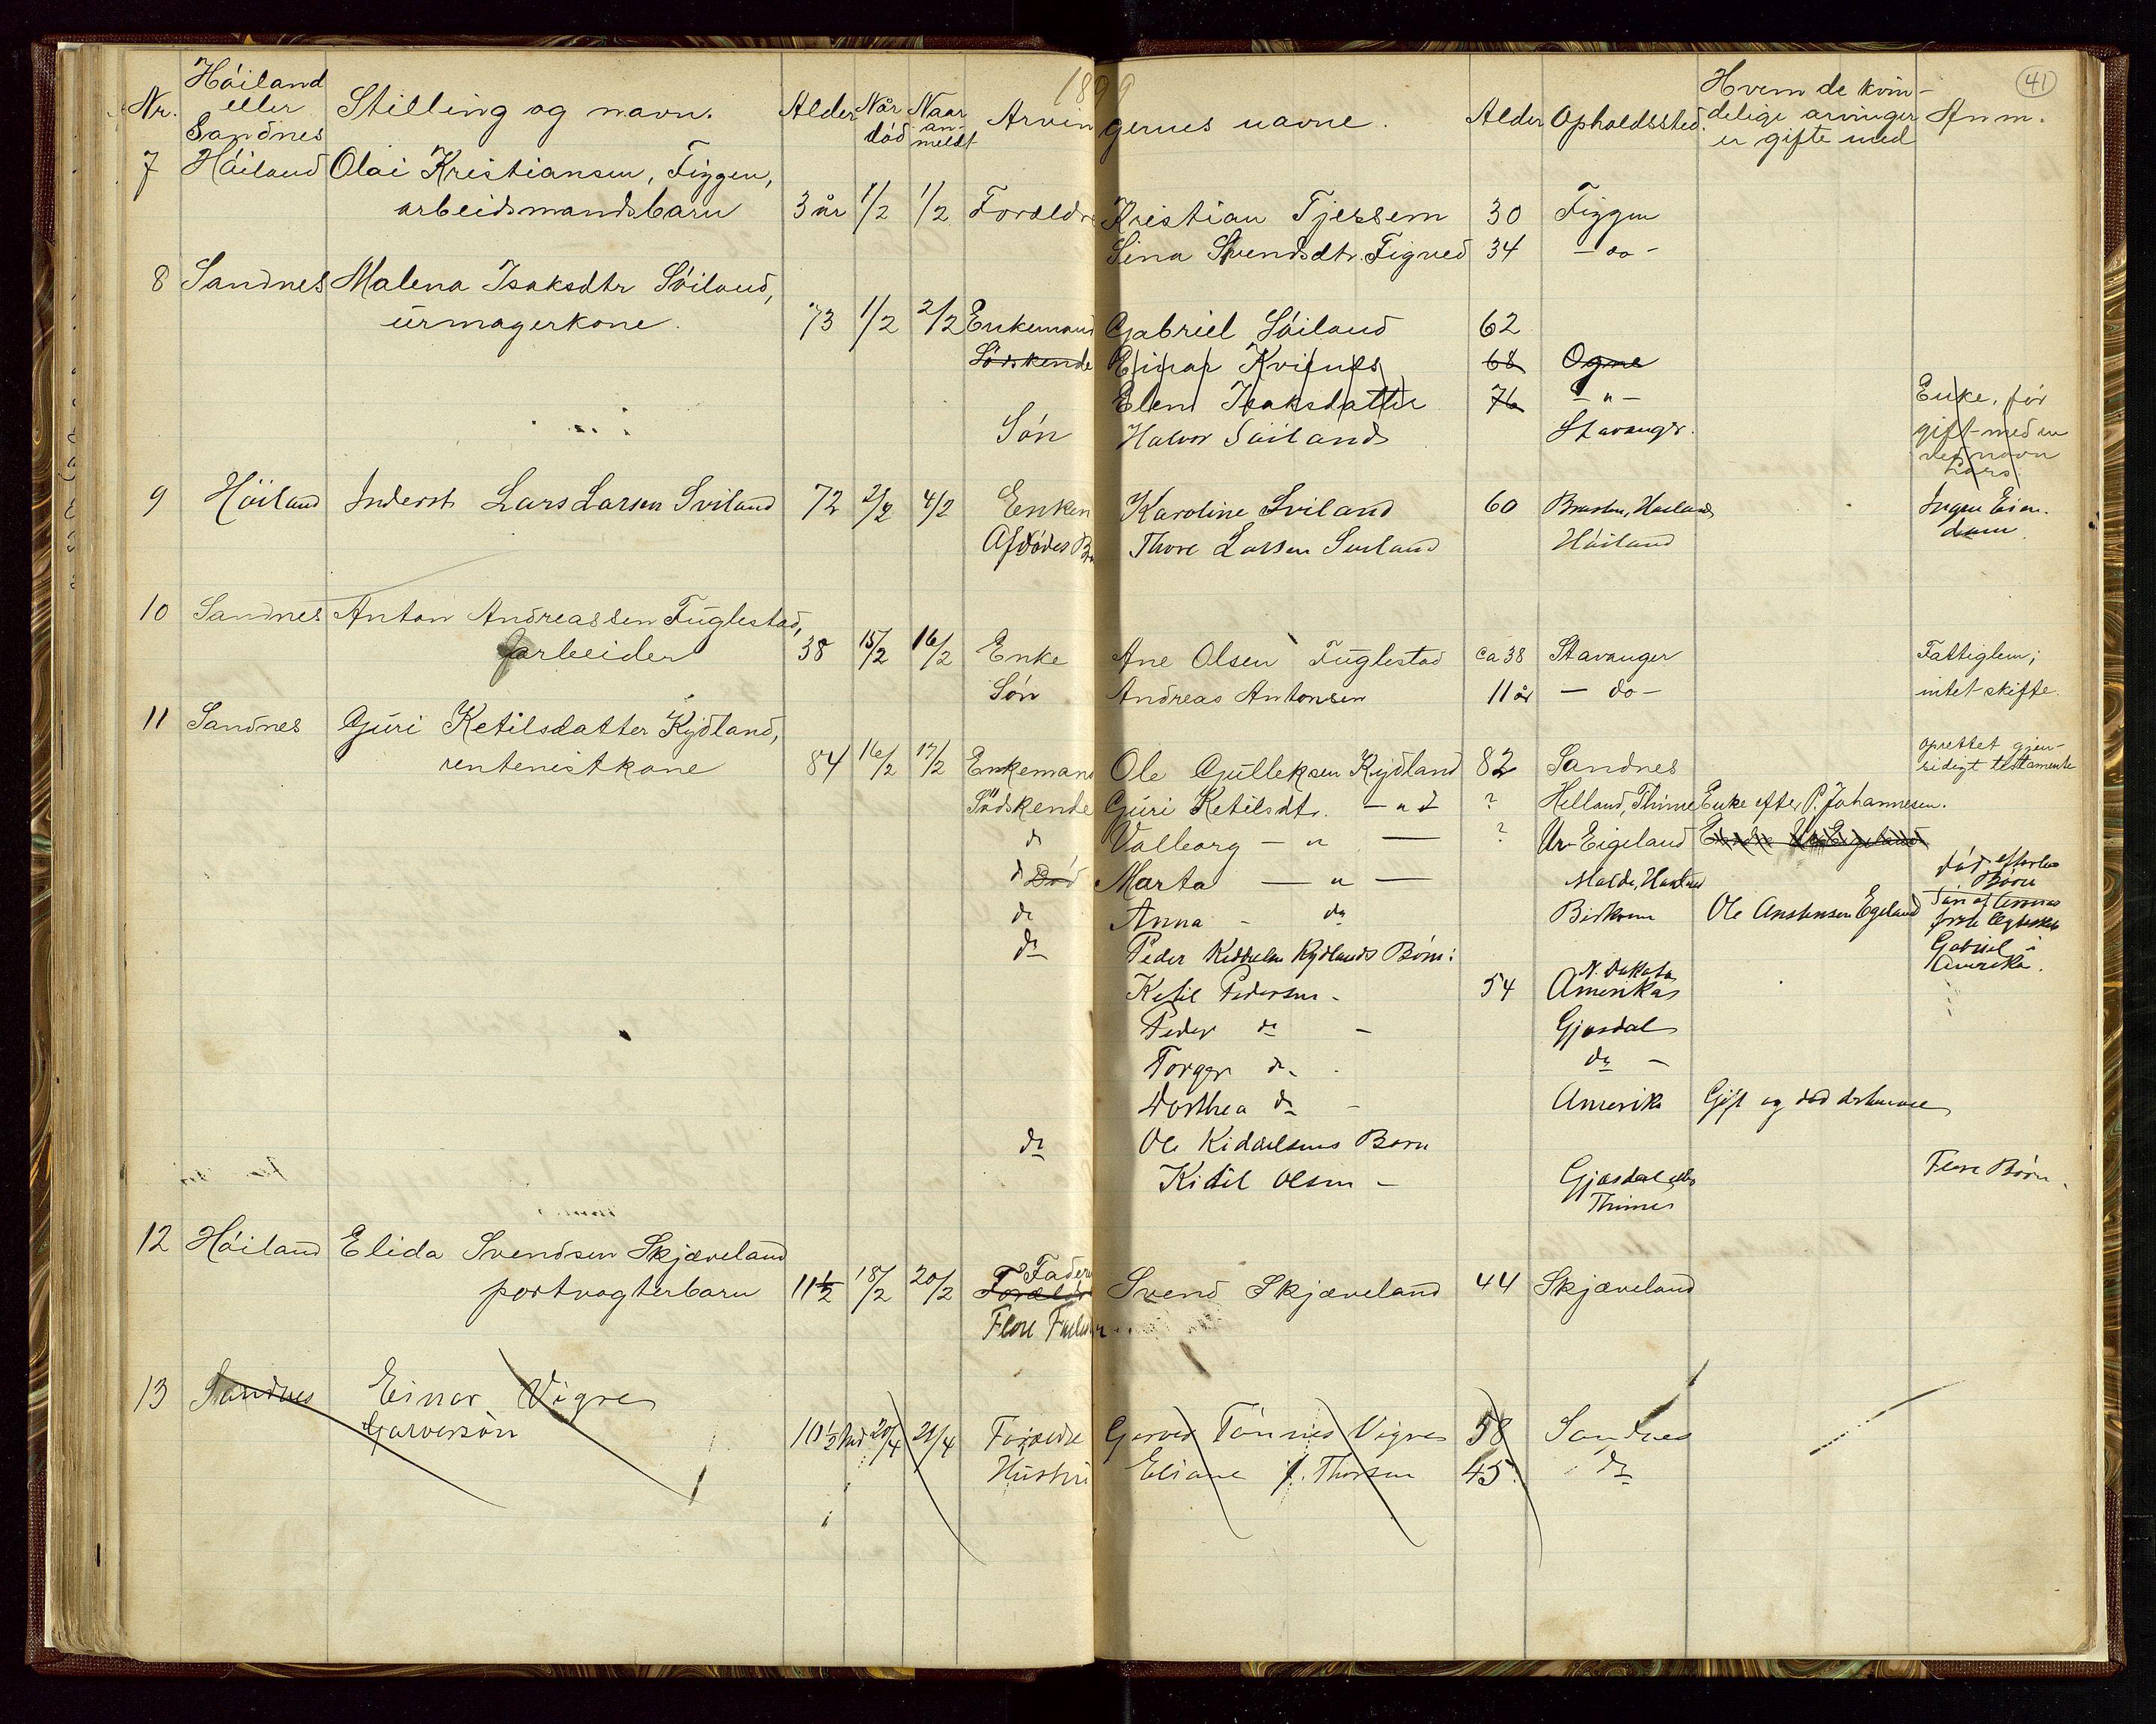 1899
41
Nr. Höiland eller Sandnes Stilling og navn. Alder Når död Naar anmeldt Arvingernes navne. Alder Opholdssted. Hvem de kvindelige arvinger er gifte med Anm.
7 Höiland Olai Kristiansen, Figgen,
arbeidsmandsbarn 3 år 1/2 1/2 Forældre Kristian Tjessem 30 Figgen
Sina Svendsdtr. Figved 34 - do -
8 Sandnes Malena Isaksdtr Söiland,
urmagerkone. 73 1/2 2/2 Enkemand Gabriel Söiland 62
Södskende Einar Kvifnes 68 Ogne
Elen Isaksdatter 76 - " - Enke, før
Sön Halvor Söiland Stavanger. gift med en
ved navn
Lars
9 Höiland Inderst Lars Larsen Sviland 72 2/2 4/2 Enken Karoline Sviland 60 Höiland Ingen Eien-
Afdödes Br Thore Larsen Sviland Höiland dom.
10 Sandnes Anton Andreassen Fuglestad,
arbeider 38 15/2 16/2 Enke Ane Olsen Fuglestad ca 38 Stavanger Fattiglem;
Sön Andreas Antonsen 11 år - do - intet skifte.
11 Sandnes Guri Ketilsdatter Kydland,
oprettet gjen-
rentenistkone 84 16/2 17/2 Enkemand Ole Gulleksen Kydland 82 Sandnes sidigt testamente
Södskende Guri Ketilsdtr. - " - ? Helland, Thime Enke efter P. Johannesen.
do Valborg - " - ? Ur-Eigeland
do Död Marta - " - Malde, Haaland död efterl.
Börn
do Anna - do Birkrem Ole Anstensen Egeland
do Peder Kiddelsen Kydlands Börn: Gabriel i
N. Dakota Amerika.
Ketil Pedersen - 54 Amerika
Peder do - Gjesdal
Torger do - do -
Dorthea do - Amerika Gift og död derhenne
do Ole Kiddelsens Born
Kidil Olsen - Gjesdal eller Flere Börn.
Thime
12 Höiland Elida Svendsen Skjæveland
Fader
portvogterbarn 11 1/2 18/2 20/2 Forældre Svend Skjæveland 44 Skjæveland
Flere
13 Sandnes Einar Vigre
Garversön 10 1/2 20/4 21/4 Forældre Garver Tönnes Vigre 58 Sandnes
Hustru Eliane f. Thorsen 45 do